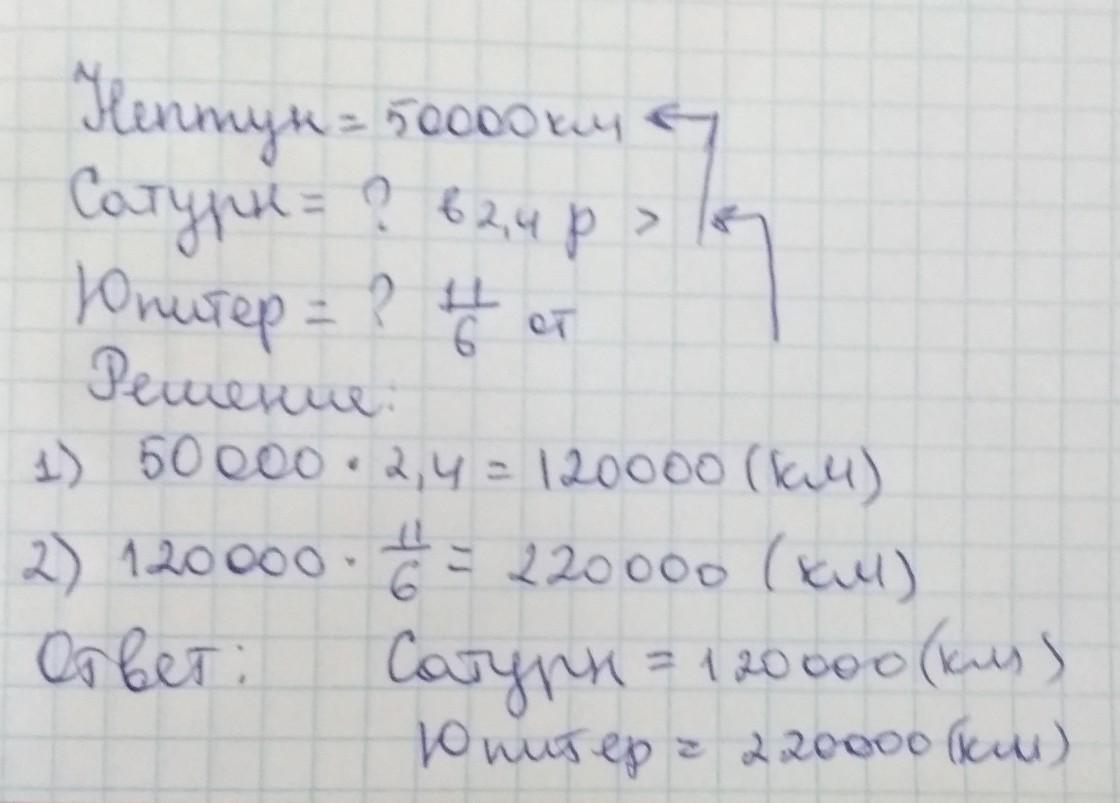 Нептун = 50000км
Сатурн = ? в 2,4 р >
Юпитер = ? 11/6 от
Решение:
1) 50000 · 2,4 = 120000 (км)
2) 120000 · 11/6 = 220000 (км)
Ответ: Сатурн = 120000 (км)
Юпитер = 220000 (км)